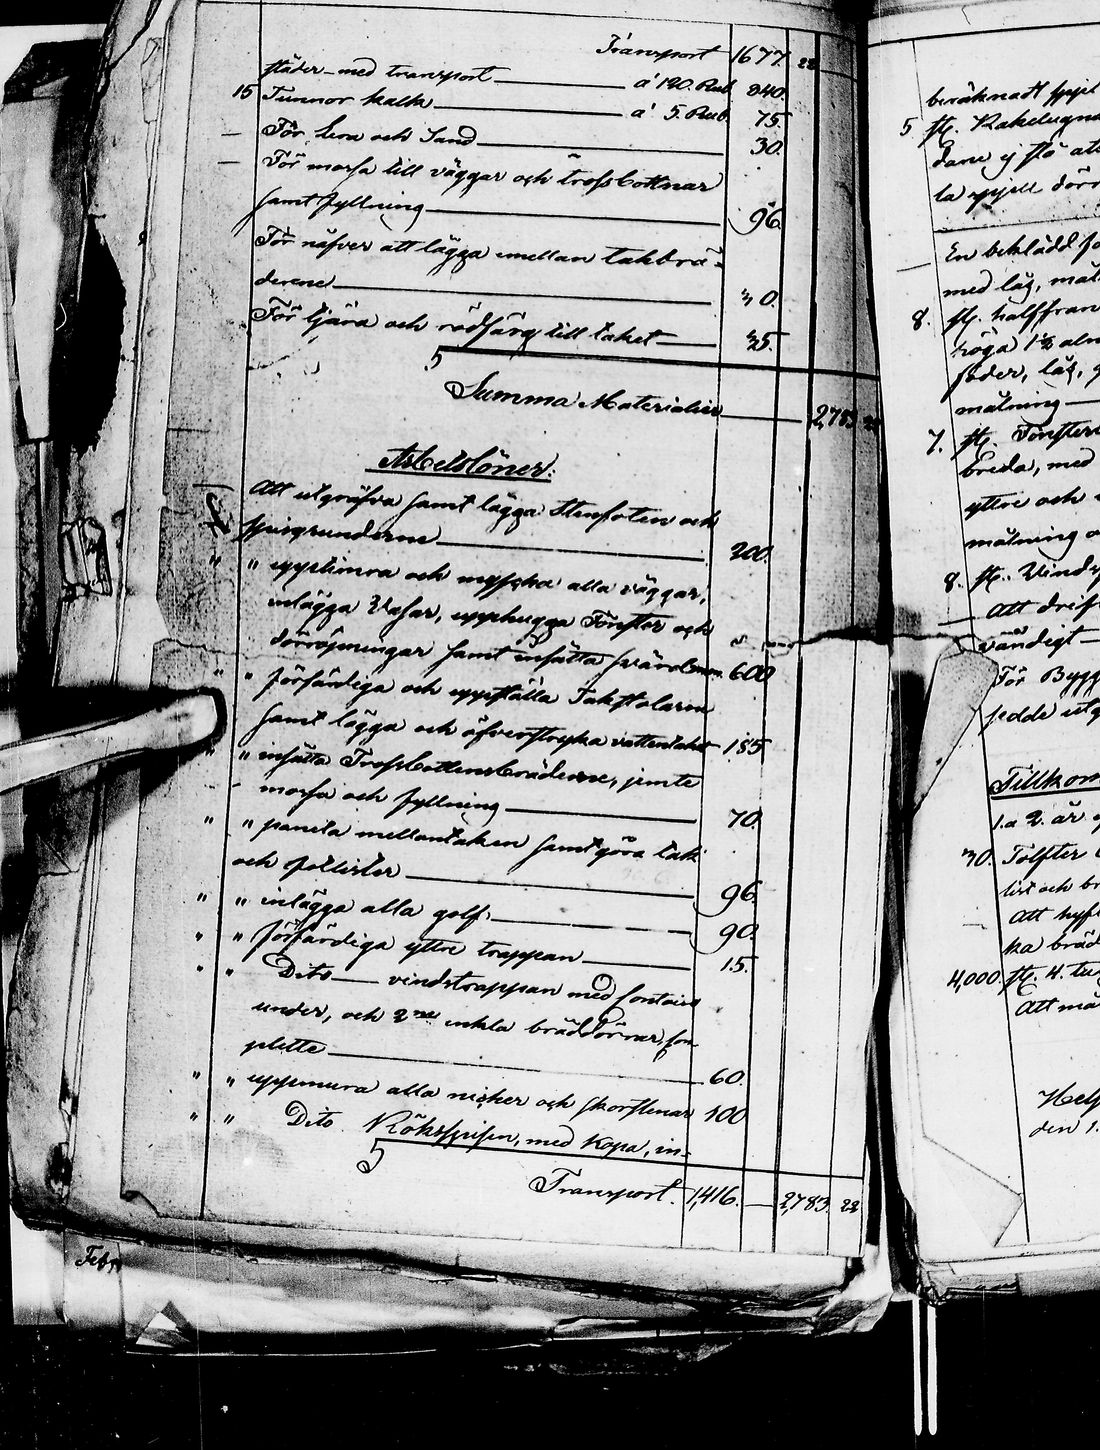 Transport 1677. 22
städer med transport á 120. Rub. 840.
15 Tunnor kalk á 5. Rub. 75.
— För lera och Sand 30.
— För mossa till väggar och trossbottnar
samt fyllning 96.
För näfver att lägga emellan takbrä-
derne 30.
För tjära och rödfärg till taket 35.
Summa Materialier 2,783 22
Arbetslöner.
Att utgräfva samt lägga Stenfoten och
spisgrunderne 200.
" " upptimra och mossha alla väggar,
inlägga Vasar, upphugga Fönster och
dörröpningar samt insätta svärdam 600
" " förfärdiga och uppställa Takstolarne
samt lägga och öfverstryka vattentaket 185
" " insätta Trossbottensbräderne, jemte
mossa och fyllning 70.
" " panela mellantaken samt göra tak
och fotlister 96.
" " inlägga alla golf 90.
" " förfärdiga yttre trappan 15.
" " Dito vindstrappan med
under, och 2ne enkla bräddörrar, kom-
plette 60.
" " uppmura alla muren och skorstenar 100
" " Dito Kökspisen, med Kopa, in-
Transport. 1,416. — 2,783. 22
Febr
beräknadt spjel
5 st. Kakelugna
la spjell dörr
En beklädd
med lås, mål
8. st. halffran
höga 1½ aln
foder, lås, g
målning
7. st. Fönster
breda, med
yttre och
målning o
8. st. Vinds
Att drif
vändigt
För Bygg
sedde utg
Tillkom
1. a 2. är
30. Tolfter
list och br
Att hyf
ka bräd
4,000. st. 4. tu
Att må
Helf
den 1.